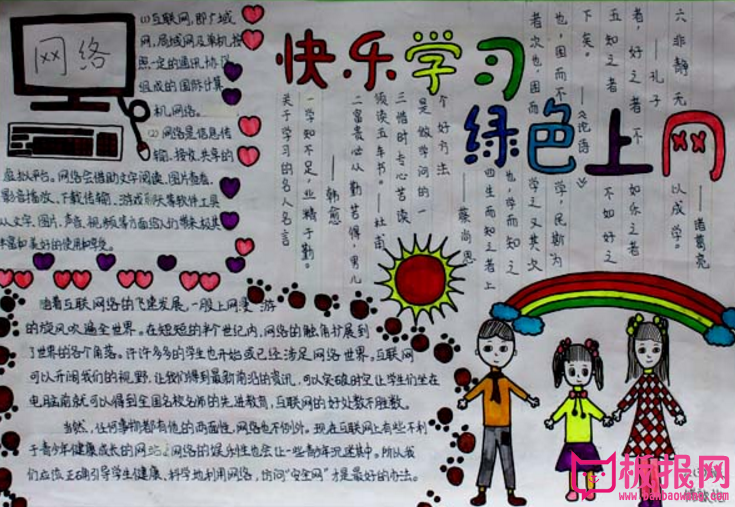 网络
(1)互联网,即广域
网,局域网及单机,按
照一定的通讯协议
组成的国际计算
机网络。
(2)网络是信息传
输、接收、共享的
虚拟平台。网络会借助文字阅读、图片查看、
影音播放、下载传输、游戏聊天等软件工具
从文字、图片、声音、视频等方面给人们带来极其
丰富和美好的使用和享受。
快乐学习
绿色上网
关于学习的名人名言
一学知不足,业精于勤。
——韩愈
二富贵必从勤苦得,男儿
须读五车书。——杜甫
三惜时、专心、苦读
是做学问的一
个好方法
——蔡尚思
四生而知之者上
也,学而知之
者次也,困而
学之又其次
也,困而不
学,民斯为
下矣。
——《论语》
五知之者不如好之
者,好之者不如乐之者
——孔子
六非静无以成学。
——诸葛亮
随着互联网络的飞速发展,一股上网 游
的旋风吹遍全世界。在短短的半个世纪内,网络的触角扩展到
了世界的各个角落。许许多多的学生也开始或已经涉足网络世界。互联网
可以开阔我们的视野,让我们得到最新前沿的资讯,可以突破时空让学生们坐在
电脑前就可以得到全国名校名师的先进教育,互联网的好处数不胜数。
当然,任何事物都有他的两面性,网络也不例外。现在互联网上有些不利
于青少年健康成长的网站,网络的娱乐性也会让一些青少年沉迷其中。所以我
们应该正确引导学生健康、科学地利用网络,访问“安全网”才是最好的办法。
板报网
www.banbaowang.com